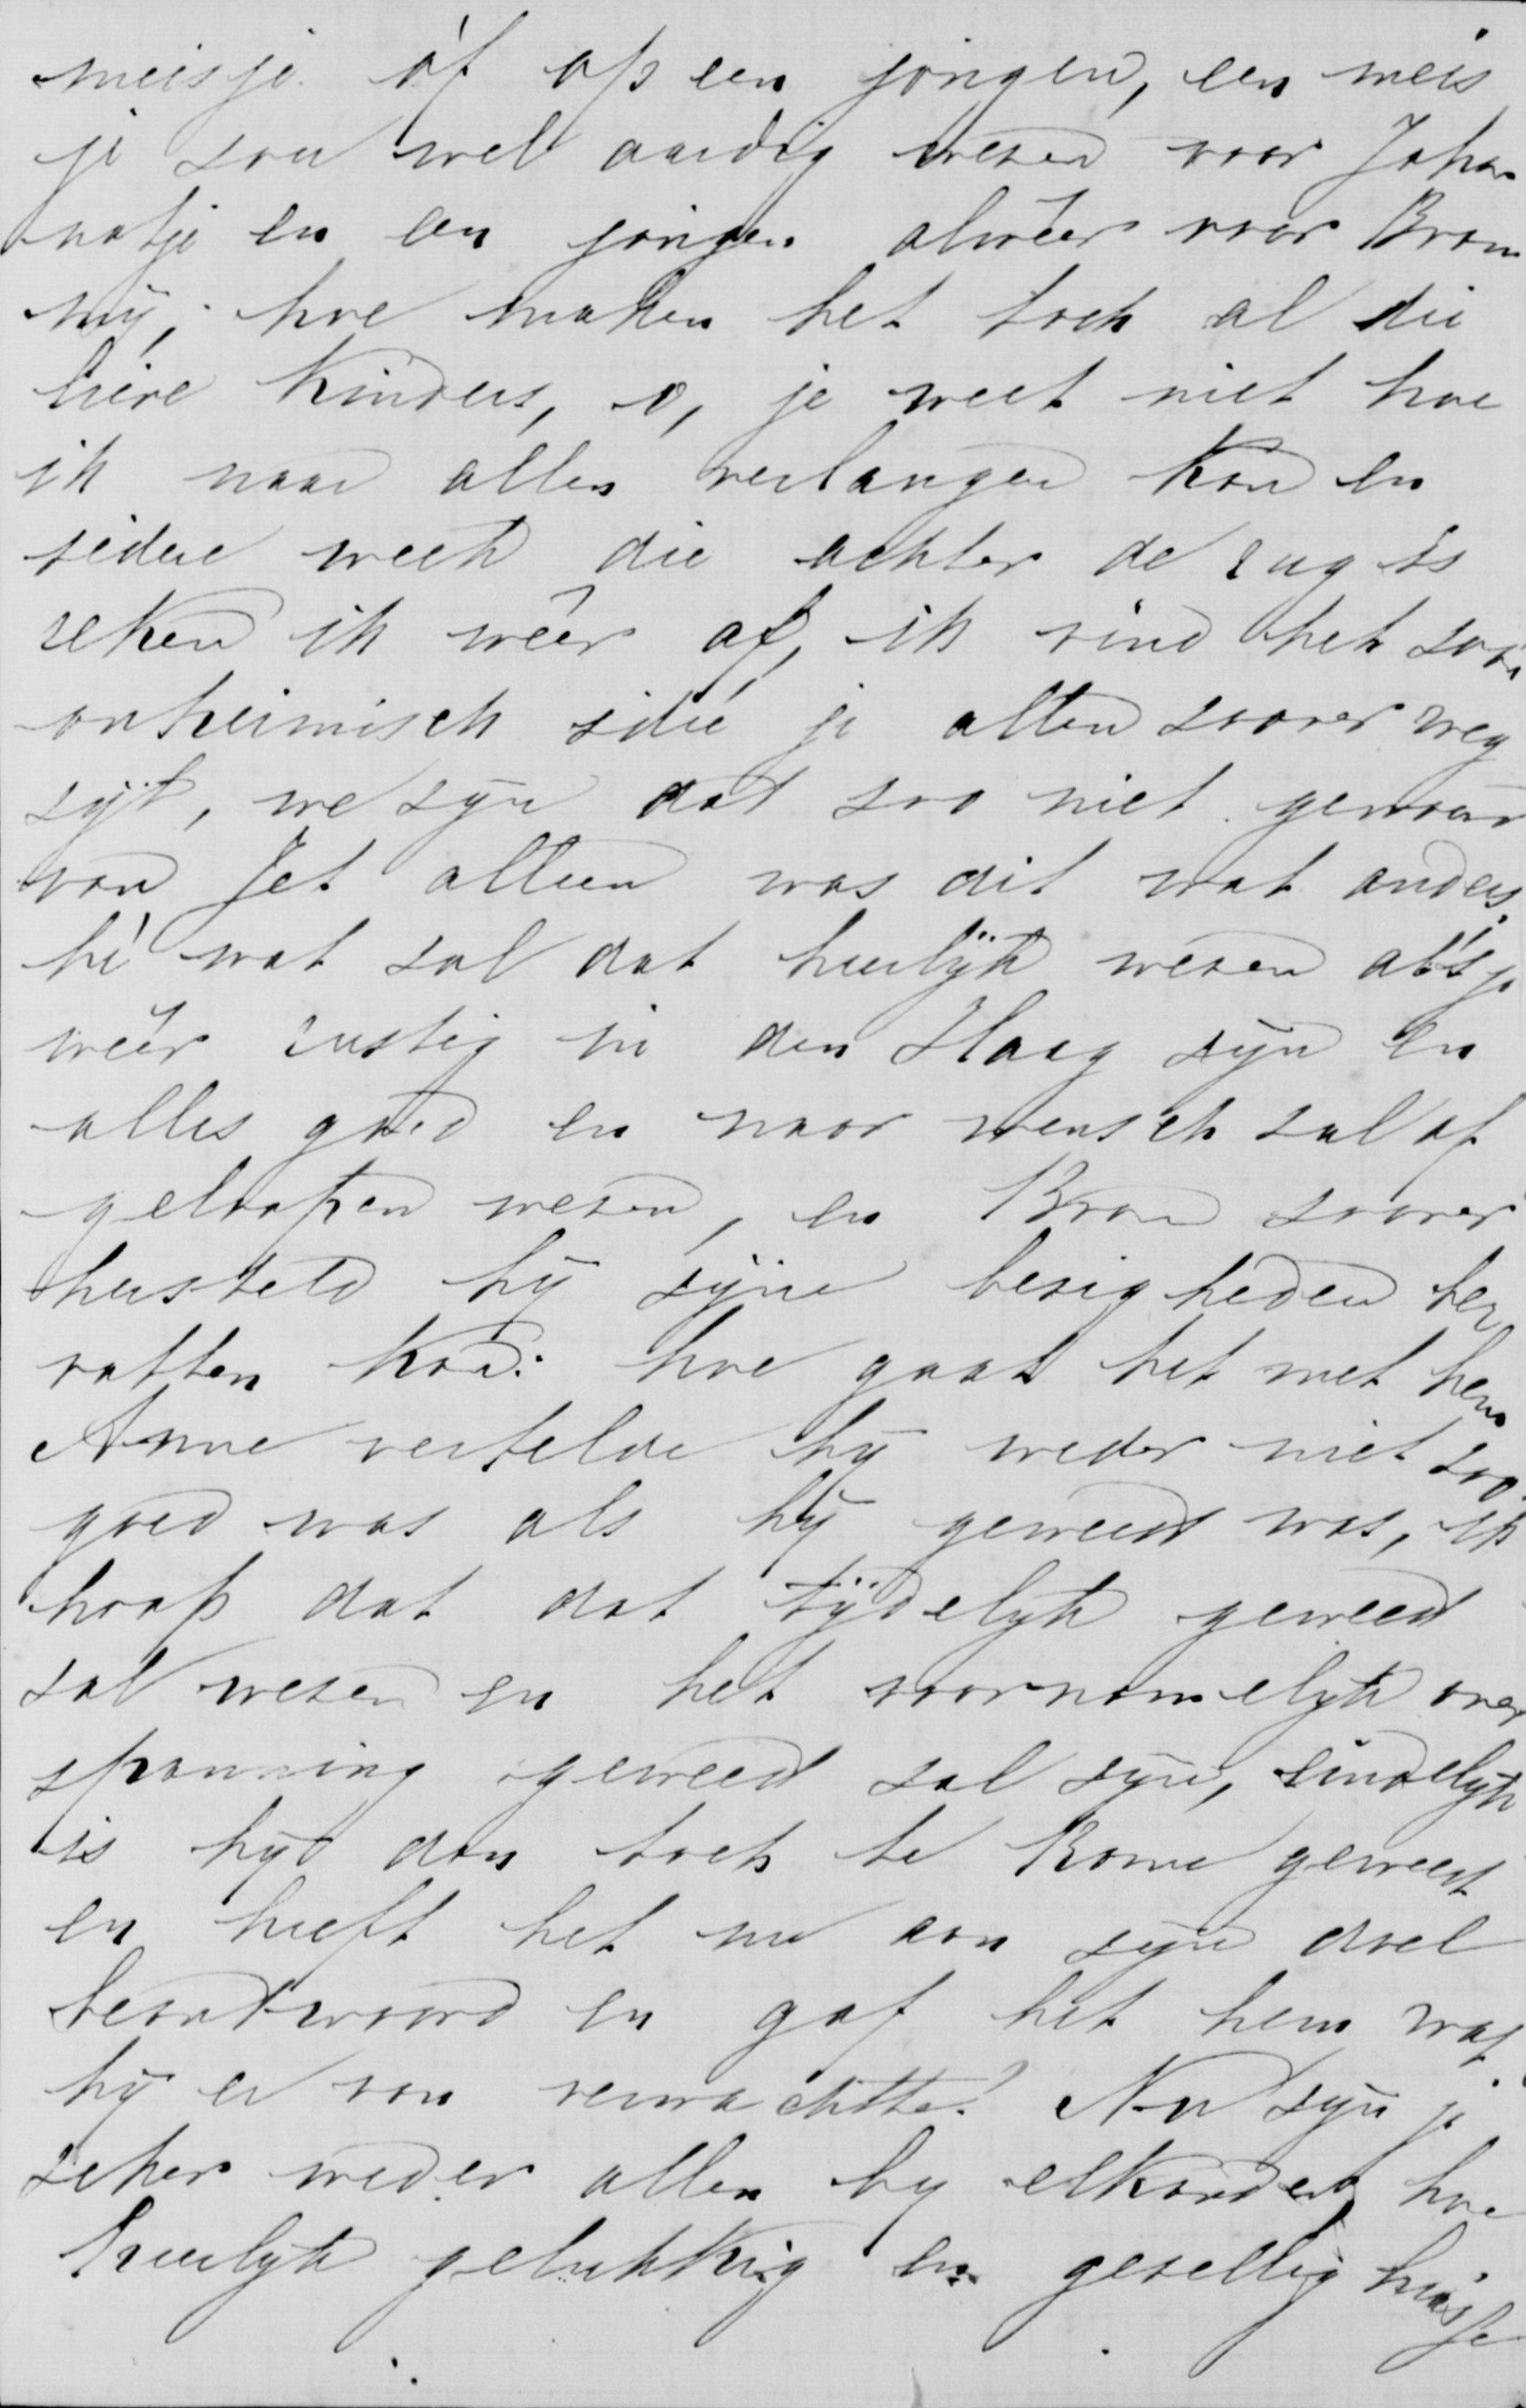 meisje òf op een jongen, een meis
je sou wel aardig wesen voor Johan
natje en een jongen alwéér voor Bram
mij; hoe maken het toch al die
lieve kinders, o, je weet niet hoe
ik naar allen verlangen kan en
iedere week die achter de rug is
reken ik wéér af, ik vind het soo'n
onheimisch idée je allen soover weg
sijt, we sijn dat soo niet gewoon
van Jet alleen was dit wat anders,
hè wat sal dat heerlijk wesen als je
wéér rustig in den Haag sijn en
alles goed en naar wensch sal af
geloopen wesen, en Bram soover
hersteld hij sijne besigheden her
vatten kan: hoe gaat het met hem
Anne vertelde hij weder niet soo
goed was als hij geweest was, ik
hoop dat dat tijdelijk geweest
sal wesen en het voornamelijk over
spanning geweest sal sijn, eindelijk
is hij dan toch te Rome geweest
en heeft het nu aan sijn doel
beantwoord en gaf het hem wat
hij er van verwachtte? Nu sijn je
seker weder allen bij elkander hoe
heerlijk gelukkig en gesellig huisje